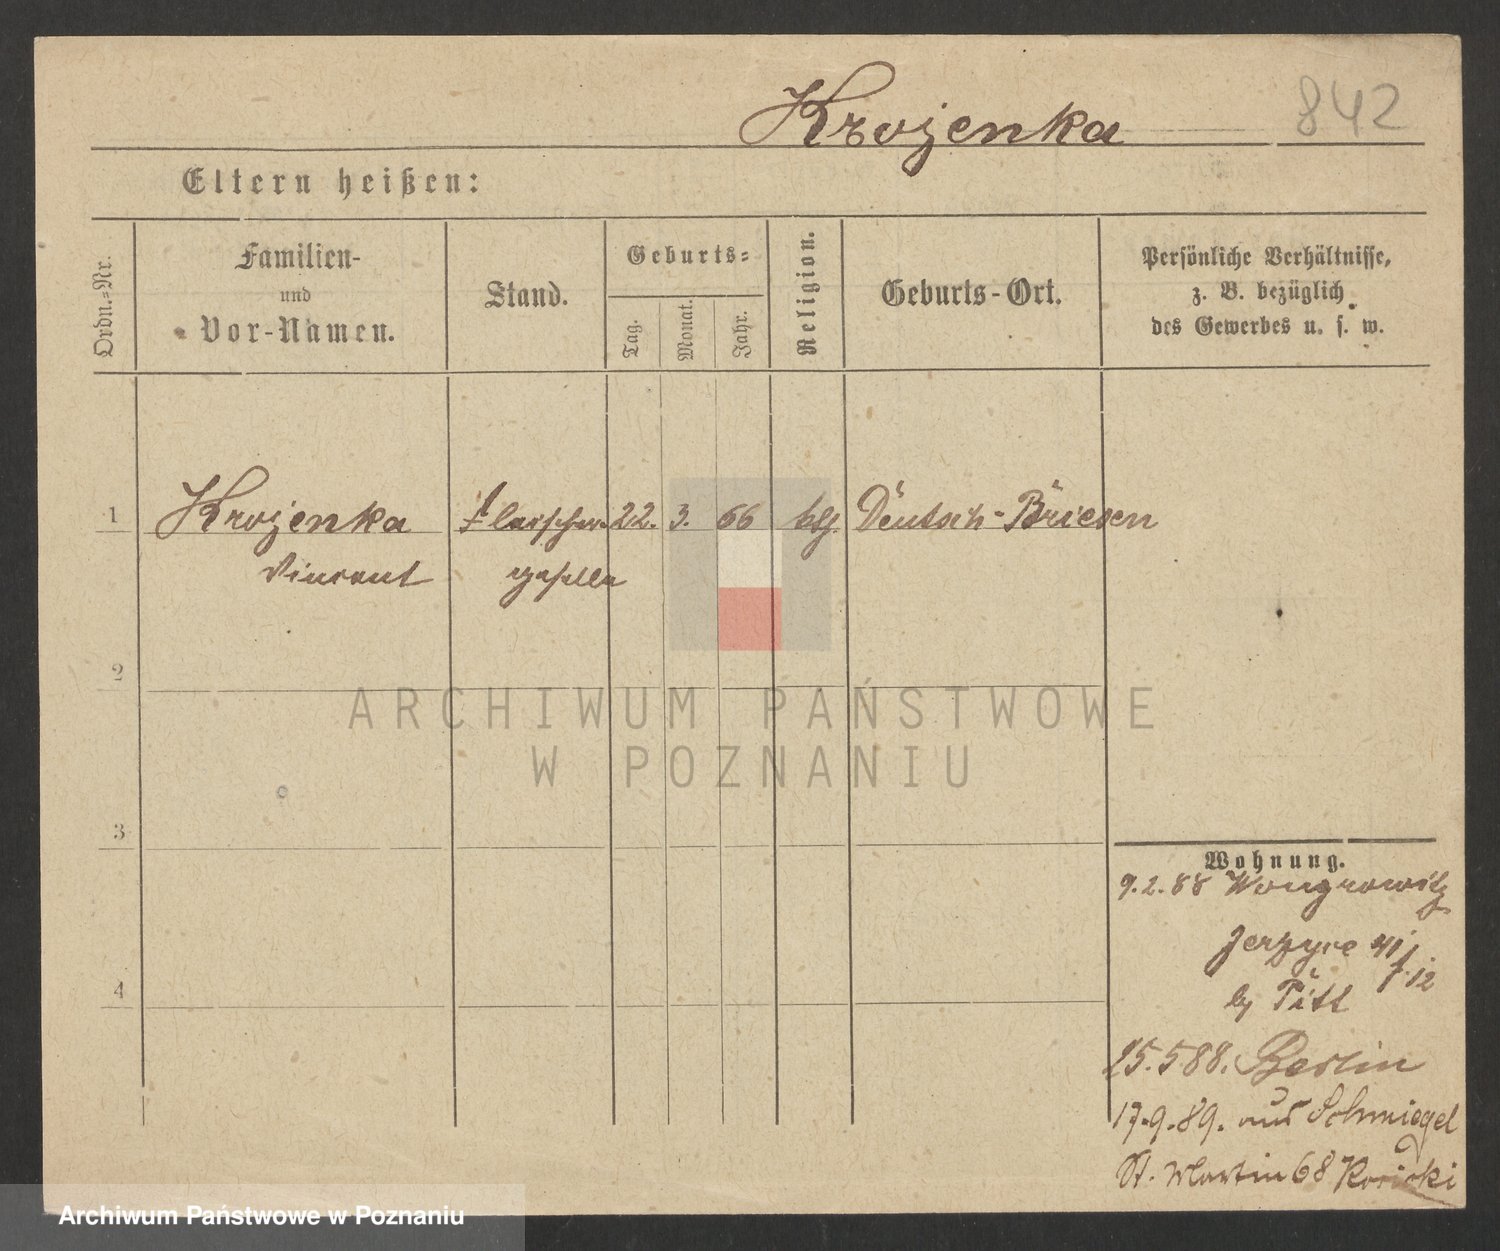 Krojenka 842
Eltern heißen:
Ordn.=Nr.
Familien-
und
Vor-Namen.
Stand.
Geburts=
Tag.
Monat.
Jahr.
Religion.
Geburts-Ort.
Persönliche Verhältnisse,
z. B. bezüglich
des Gewerbes u. s. w.
1 Krojenka Fleischer 22. 3. 66 Deutsch-Briesen
Vincent geselle
2
3
4
Wohnung.
9.2.88 Wongrowitz
41
12
25.5.88. Berlin
17.9.89. aus Schmiegel
St. Martin 68
ARCHIWUM PAŃSTWOWE
W POZNANIU
Archiwum Państwowe w Poznaniu